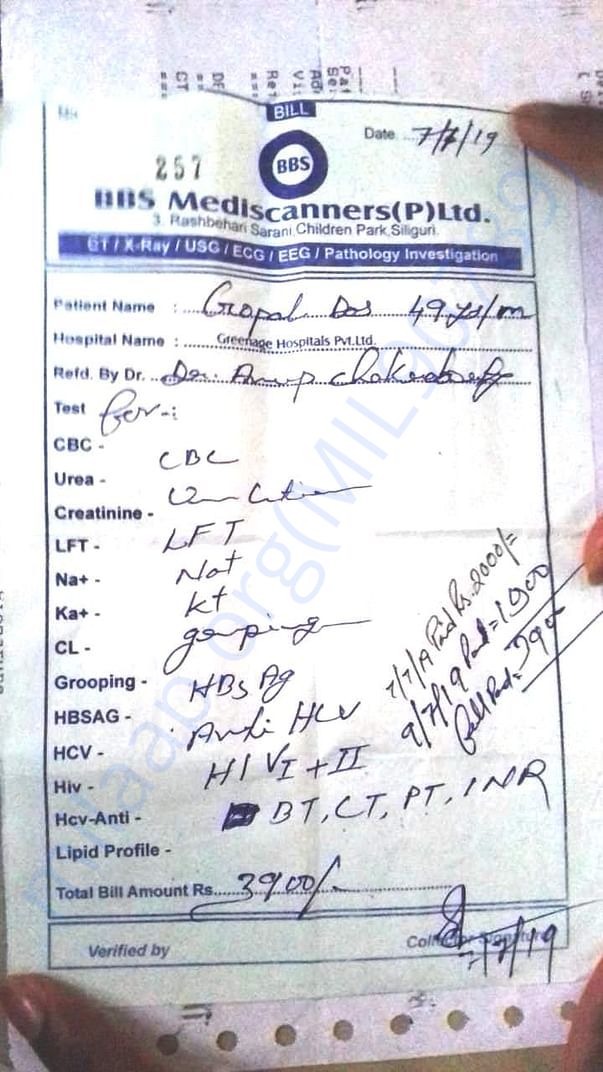 BILL
Date ....7/7/19
257
BBS
BBS Mediscanners(P)Ltd.
3, Rashbehari Sarani, Children Park, Siliguri.
CT / X-Ray / USG / ECG / EEG / Pathology Investigation
Patient Name : Gopal Das 49 yrs/m
Hospital Name : Greenage Hospitals Pvt.Ltd.
Refd. By Dr. Dr. Anup Chakraborty
Test for-:
CBC -
CBC
Urea -
Creatinine -
LFT -
LFT
Na+ -
Na+
Ka+ -
K+
CL -
grouping
Grooping -
HBs Ag
HBSAG -
Anti HCV
HCV -
HIV I + II
Hiv -
Hcv-Anti -
BT, CT, PT, INR
Lipid Profile -
7/7/19 Paid Rs. 2000/=
9/7/19 Paid = 1900
full Paid = 3900
Total Bill Amount Rs. 3900/-
Verified by
Collector Signature
7/7/19
milaap.org(MIL